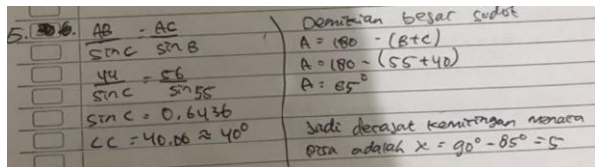 5. 6. AB/sin C = AC/sin B
44/sin C = 56/sin 55
sin C = 0,6436
∠C = 40.06 ≈ 40°
Demikian besar sudot
A = 180 - (B+C)
A = 180 - (55+40)
A = 85°
Jadi derajat kemiringan menara
pisa adalah x = 90° - 85° = 5